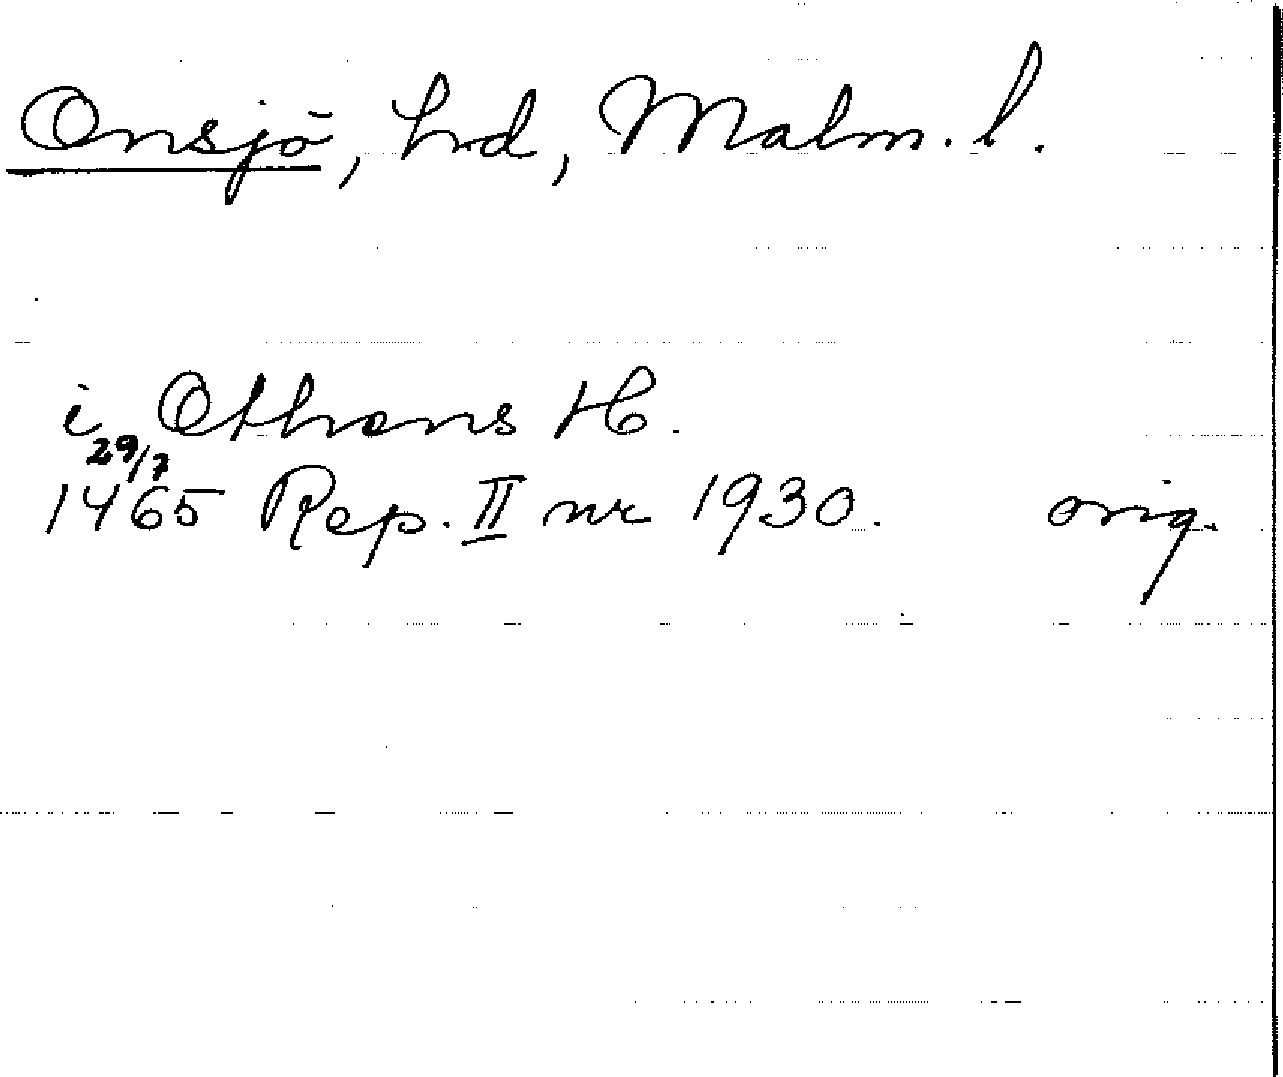 Onsjö, hrd, Malm. l.
i Othens H.
29/7
1465 Rep. II nr 1930. orig.